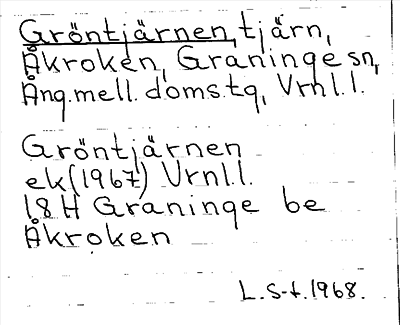 Gröntjärnen, tjärn,
Åkroken, Graninge sn,
Ång.mell. doms.tg, Vrnl.l.
Gröntjärnen
ek(1967) Vrnl.l.
18H Graninge be
Åkroken
L. S-t. 1968.